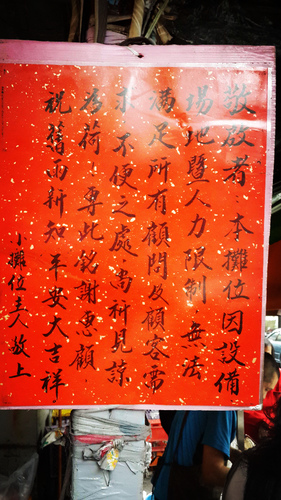 敬啟者：本攤位因設備
場地暨人力限制，無法
滿足所有顧問及顧客需
求，不便之處，尚祈見諒
為荷！專此銘謝惠顧，
祝舊雨新知平安大吉祥
小攤位主人 敬上